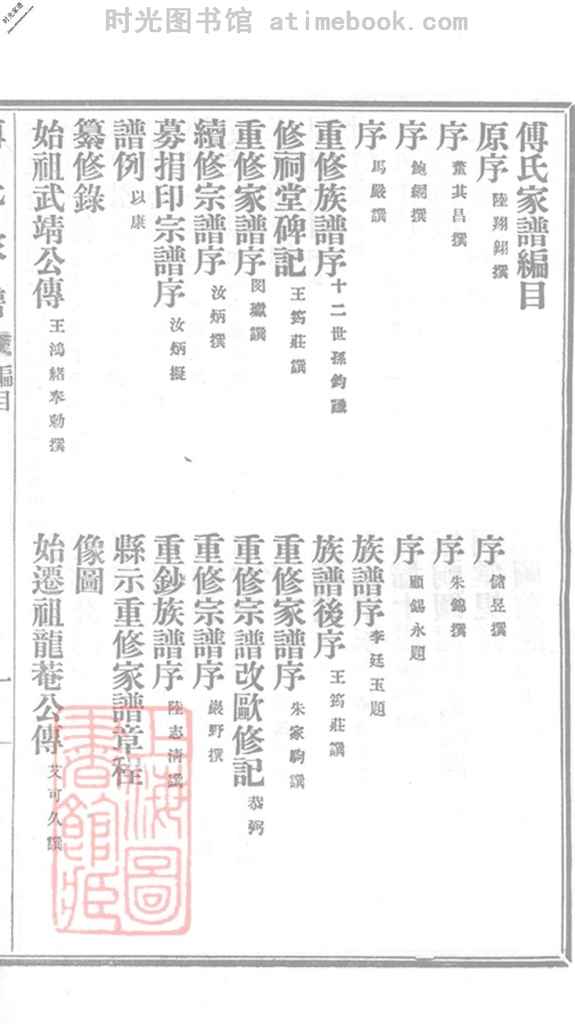 时光图书馆 atimebook.com
时光家谱
傅氏家譜編目
原序 陸翔翎撰
序 儲昱撰
序 董其昌撰
序 朱錦撰
序 鮑鋼撰
序 顧錫永題
序 馬嚴譔
族譜序 李廷玉題
重修族譜序 十二世孫鈞譔
族譜後序 王筠莊譔
修祠堂碑記 王筠莊譔
重修家譜序 朱家駒譔
重修家譜序 譔
重修宗譜改歐修記 恭弼
續修宗譜序 汝炳撰
重修宗譜序 嚴野撰
募捐印宗譜序 汝炳擬
重鈔族譜序 陸志淸譔
譜例 以康
縣示重修家譜章程
纂修錄
像圖
始祖武靖公傳 王鴻緒奉勅撰
始遷祖龍菴公傳 艾可久譔
編目
一
上海圖書館藏